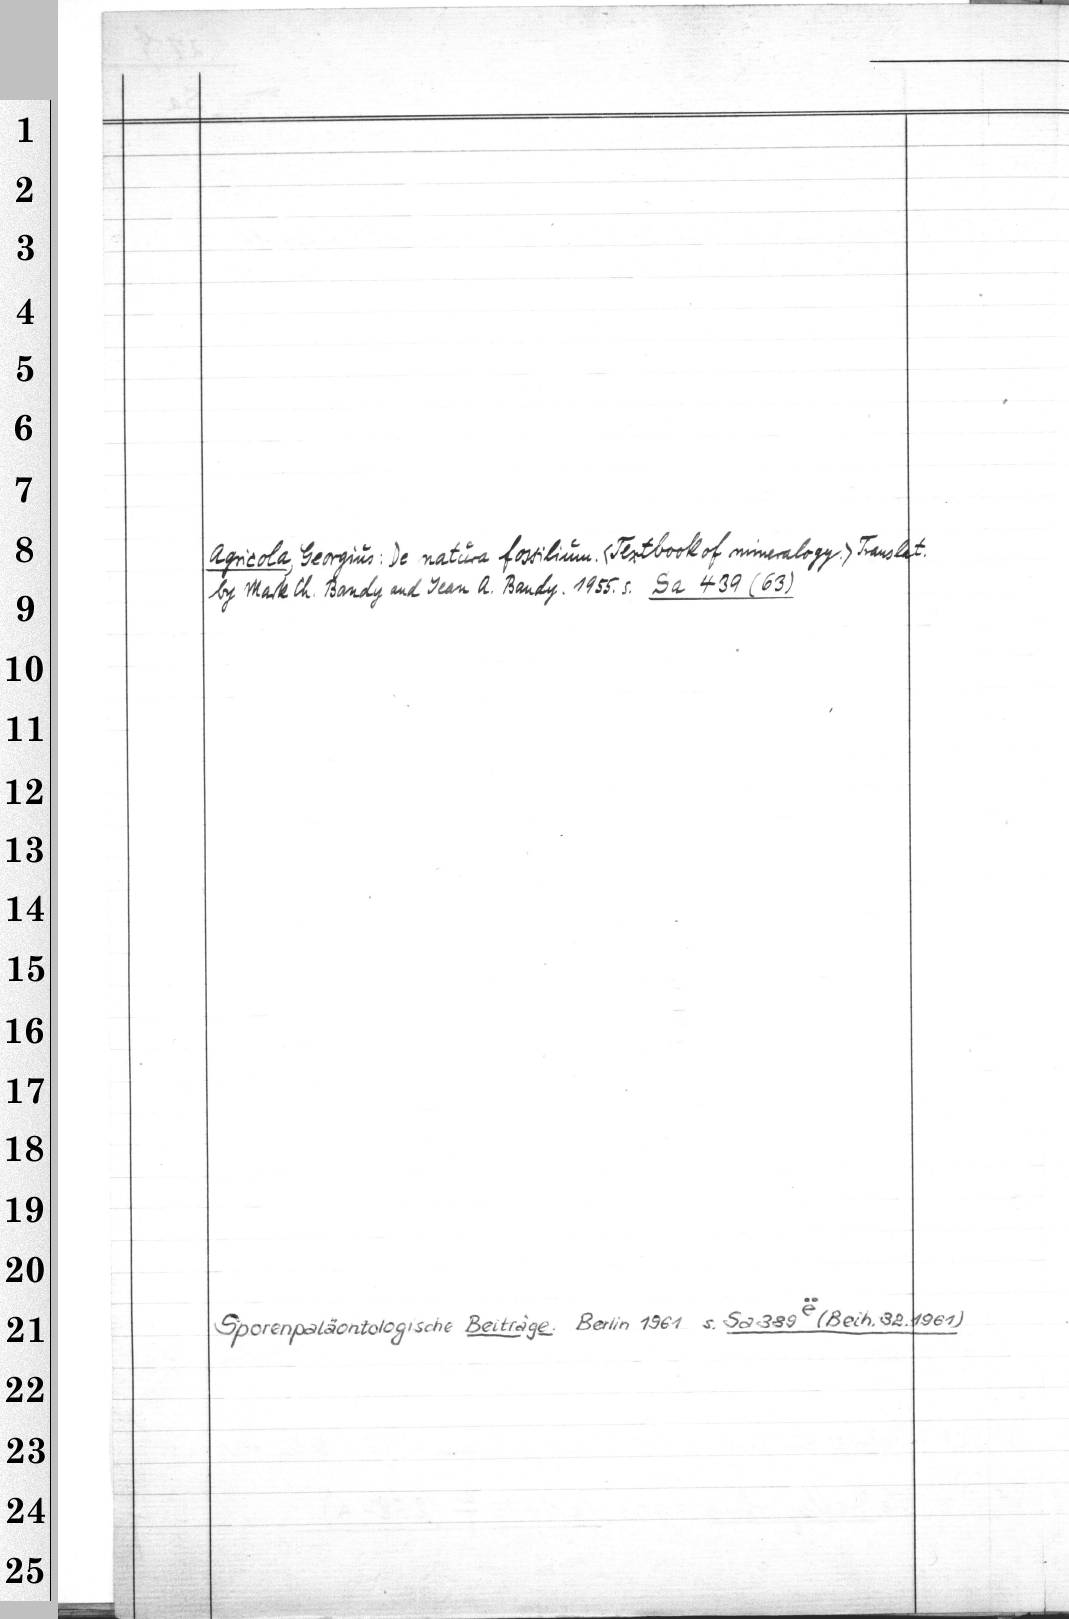 1
2
3
4
5
6
7
8
Agricola, Georgius: De natura fossilium. <Textbook of mineralogy.> Translat.
by Mark Ch. Bandy and Jean A. Bandy. 1955. s. Sa 439 (63)
9
10
11
12
13
14
15
16
17
18
19
20
21
Sporenpaläontologische Beiträge. Berlin 1961 s. Sa 389 ë (Beih. 32. 1961)
22
23
24
25